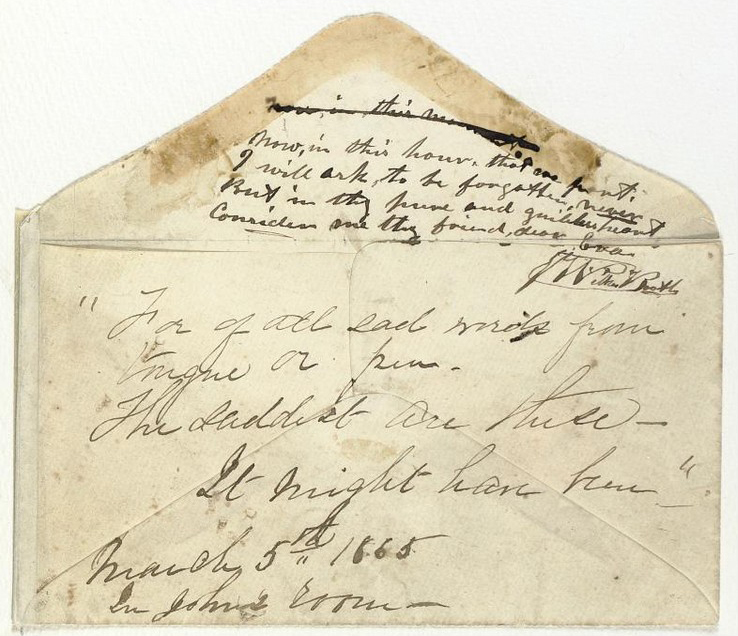 now, in this
Now, in this hour, that we part,
I will ask, to be forgotten, never
But, in thy pure and guileless heart
Consider me thy friend, dear Eva
J. Wilkes Booth
"For of all sad words from
tongue or pen.
The saddest are these—
It might have been—"
March 5th 1865
In John's room—